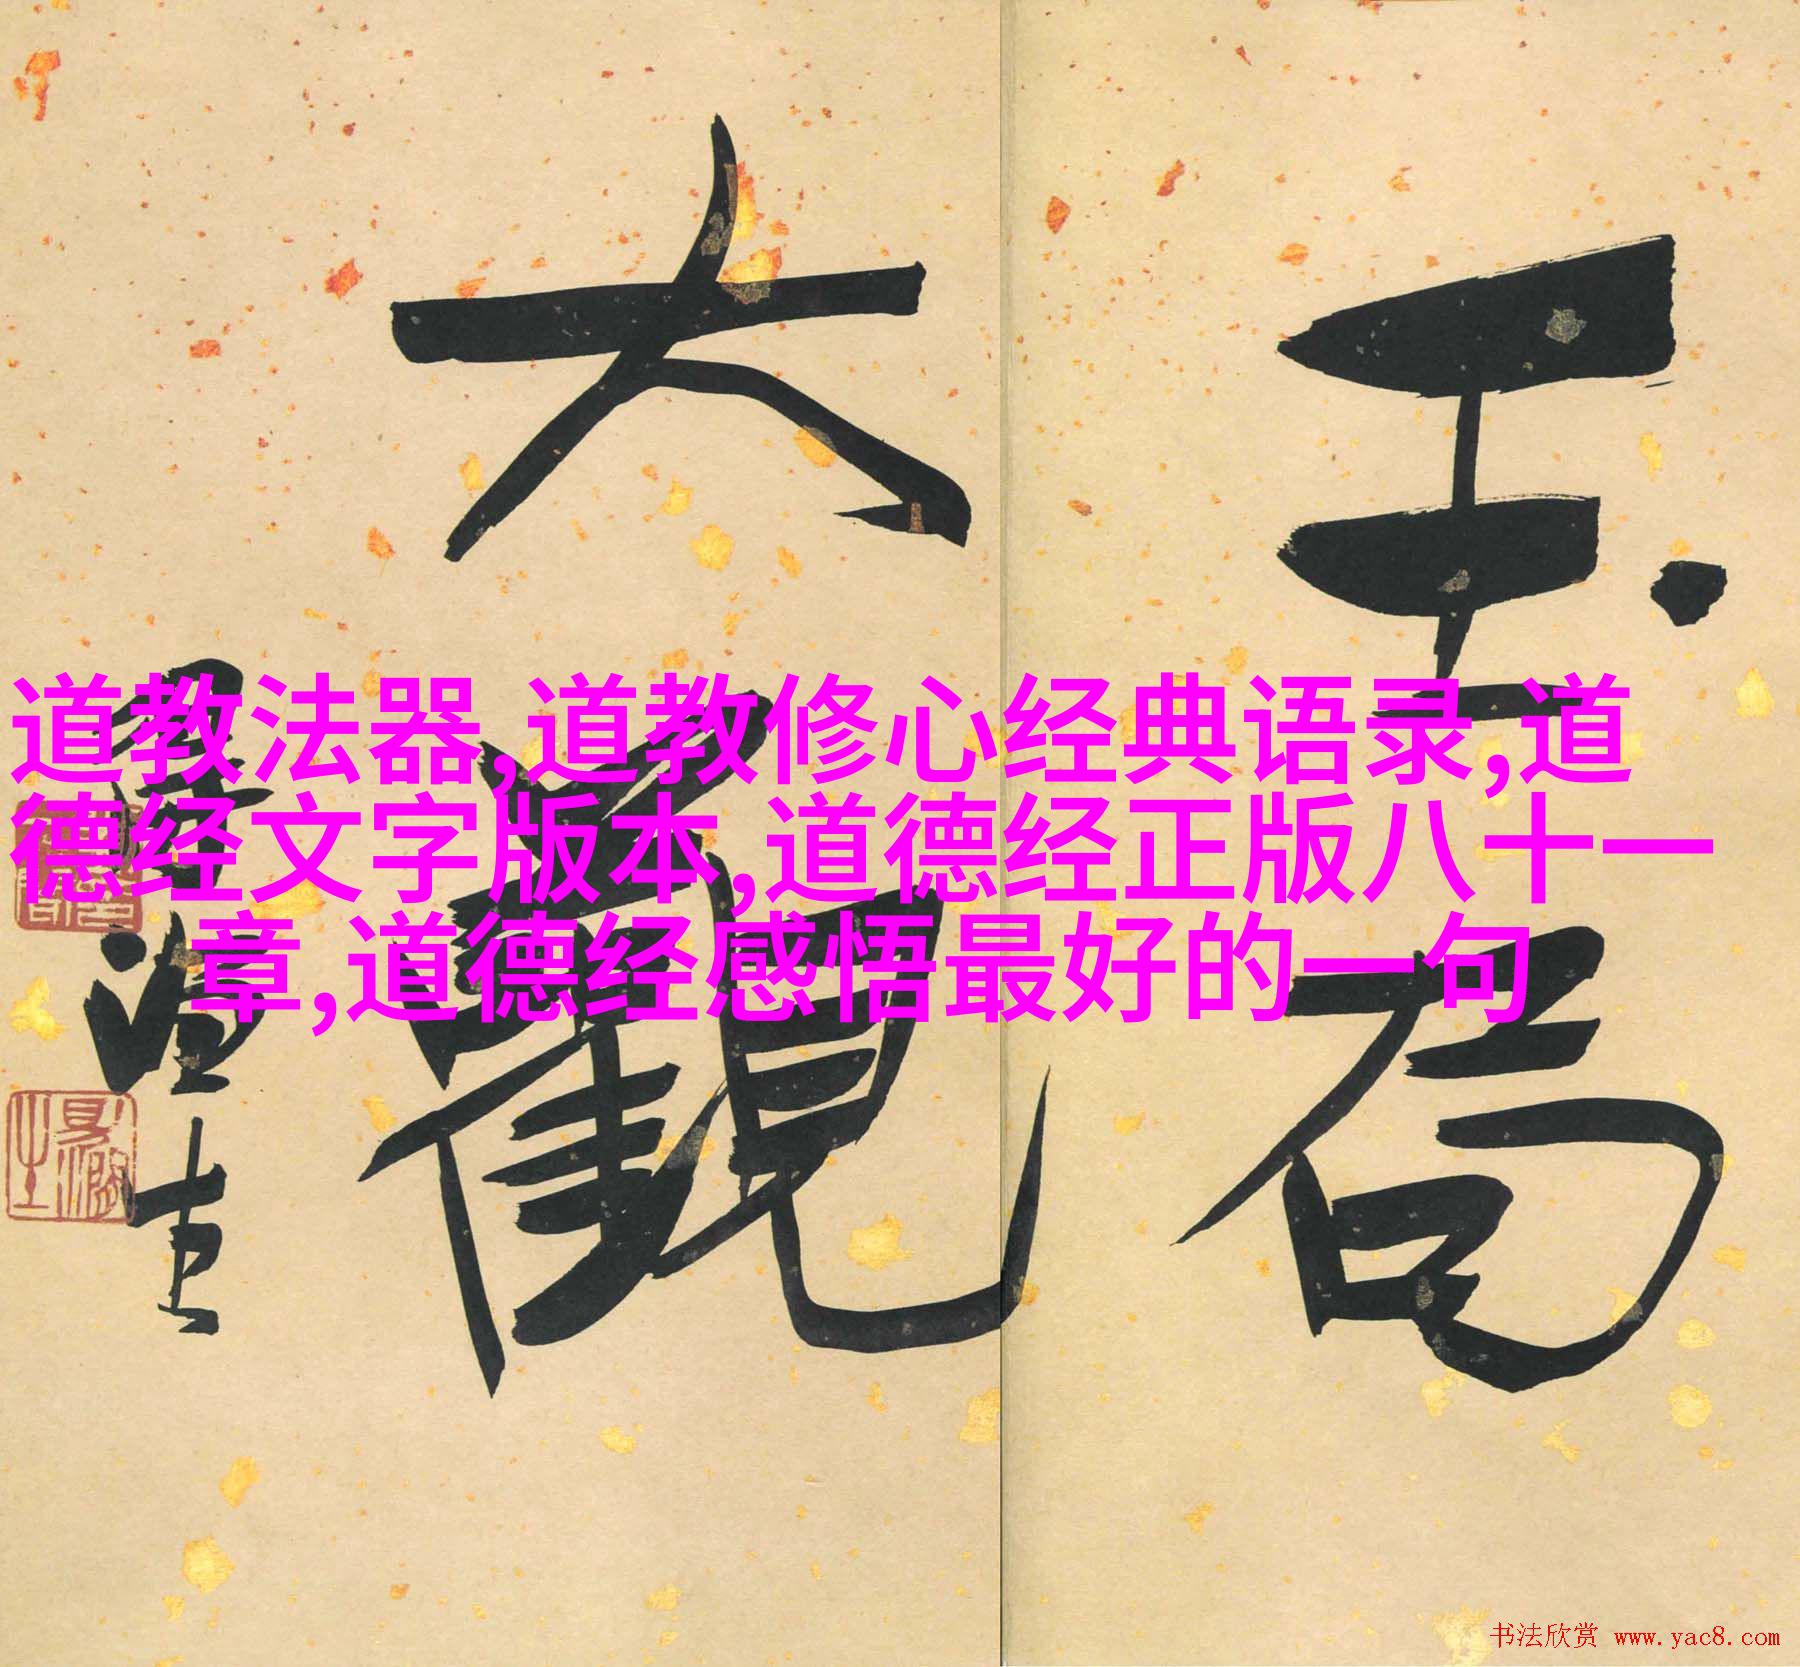 玉局
大觀
道教法器,道教修心经典语录,道
德经文字版本,道德经正版八十一
章,道德经感悟最好的一句
书法欣赏 www.yac8.com